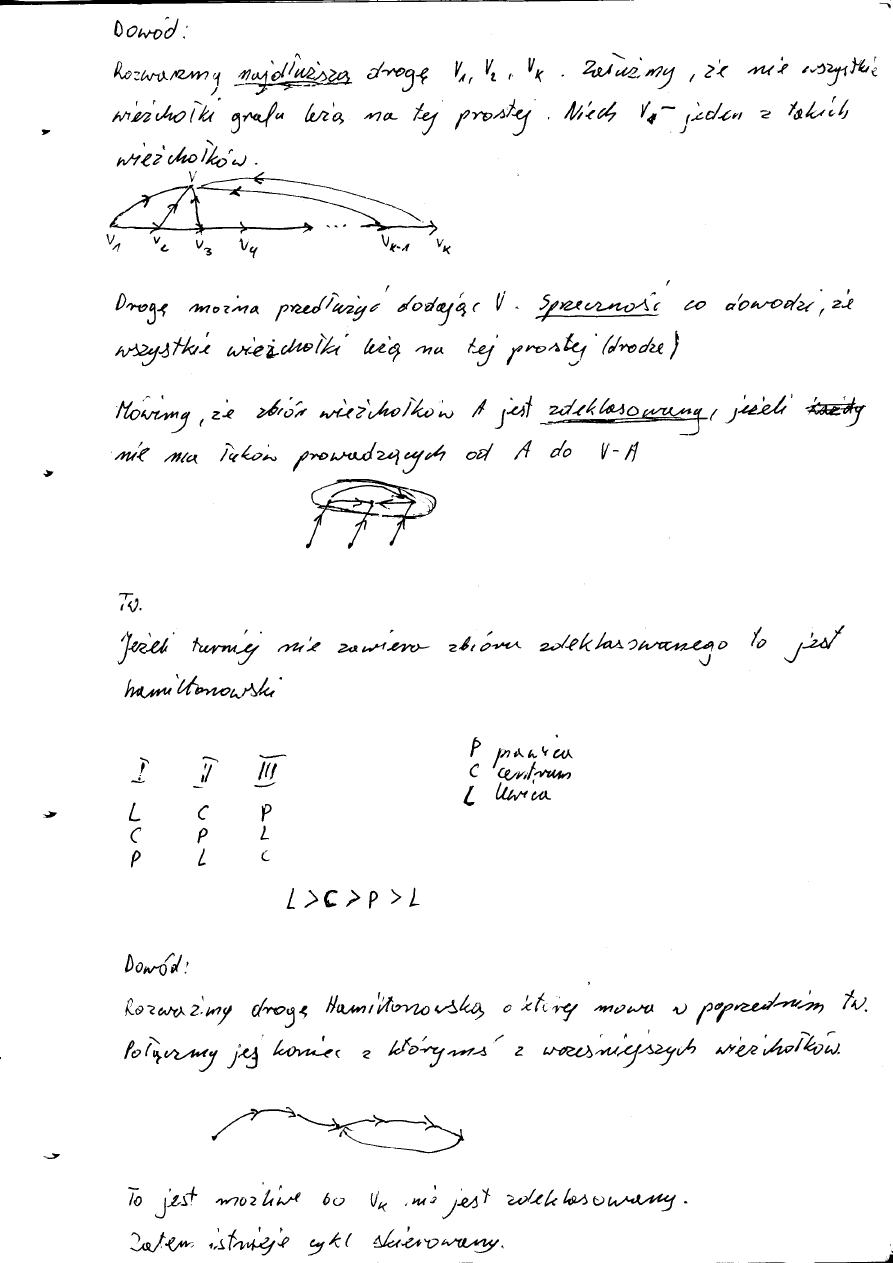 Dowód:
Rozważmy najdłuższą drogę V1, V2, VK. Załużmy, że nie wszystkie
wieżchołki grafu leżą na tej prostej. Niech V - jeden z takich
wieżchołków.
V
V1 V2 V3 V4 ... VK-1 VK
Drogę można przedłużyć dodając V. Sprzeczność co dowodzi, że
wszystkie wieżchołki leżą na tej prostej (drodze)
Mówimy, że zbiór wieżchołków A jest zdeklasowany, jeżeli
nie ma łuków prowadzących od A do V-A
Tw.
Jeżeli turniej nie zawiera zbioru zdeklasowanego to jest
hamiltonowski
I II III
L C P
C P L
P L C
P prawica
C centrum
L lewica
L>C>P>L
Dowód:
Rozważmy drogę Hamiltonowską o której mowa w poprzednim tw.
Połączmy jej koniec z którymś z wcześniejszych wieżchołków.
To jest możliwe bo VK nie jest zdeklasowany.
Zatem istnieje cykl skierowany.